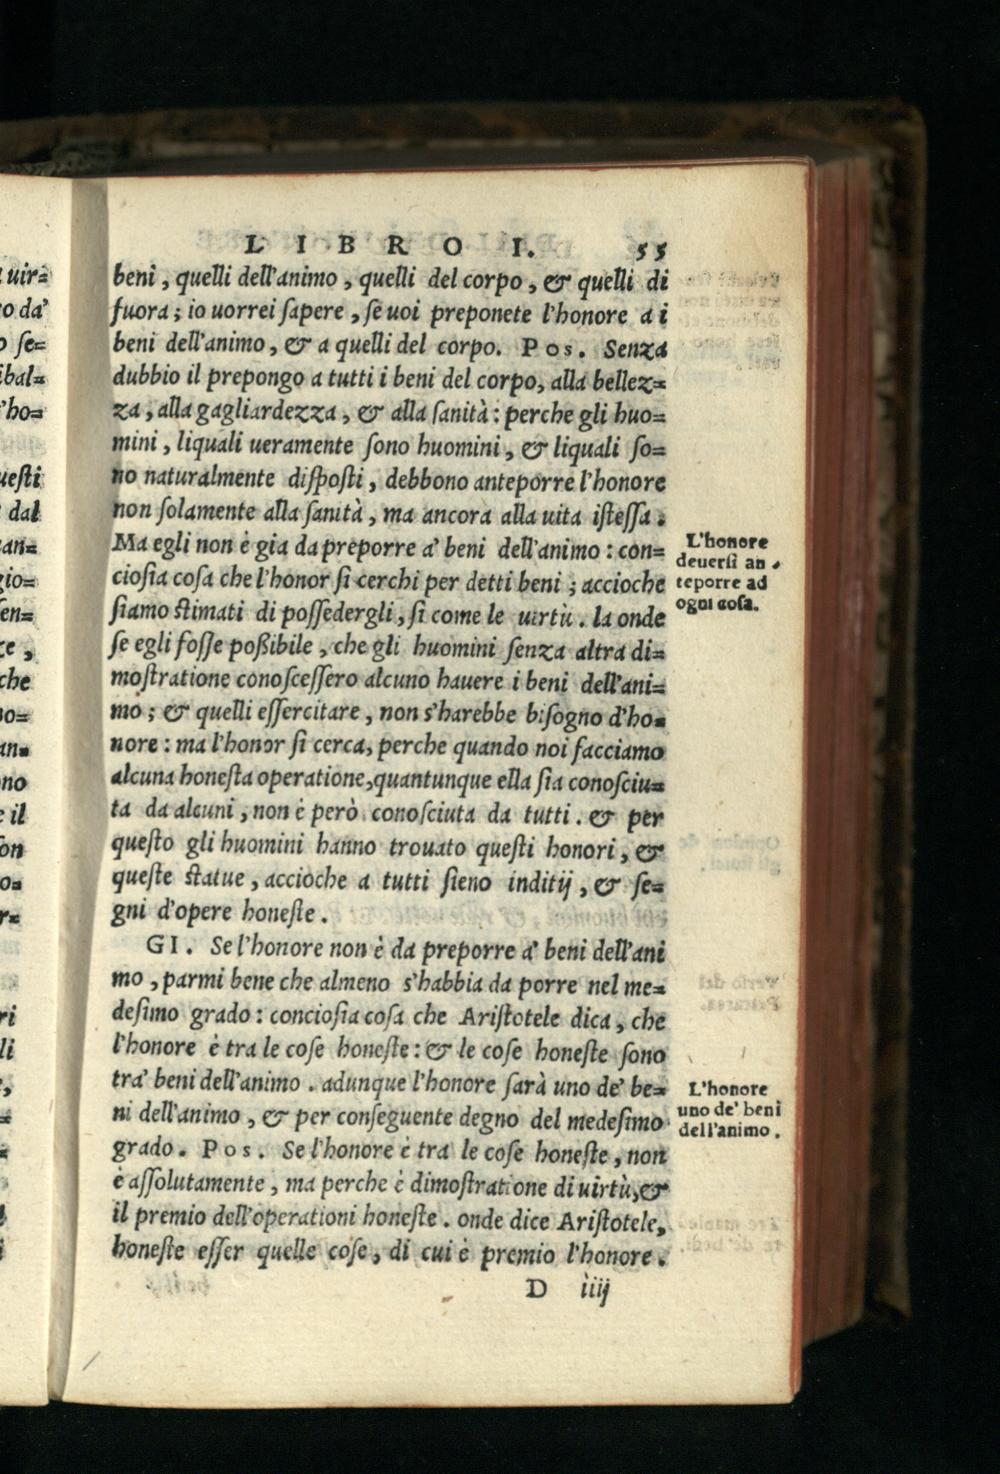 LIBRO I. 55
beni, quelli dell'animo, quelli del corpo, & quelli di
fuora; io uorrei sapere, se uoi preponete l'honore a i
beni dell'animo, & a quelli del corpo. Pos. Senza
dubbio il prepongo a tutti i beni del corpo, alla bellez=
za, alla gagliardezza, & alla sanità: perche gli huo=
mini, liquali ueramente sono huomini, & liquali so=
no naturalmente disposti, debbono anteporre l'honore
non solamente alla sanità, ma ancora alla uita istessa.
Ma egli non è gia da preporre a' beni dell'animo: con=
ciosia cosa che l'honor si cerchi per detti beni; accioche
siamo stimati di possedergli, si come le uirtù. la onde
se egli fosse poßibile, che gli huomini senza altra di=
mostratione conoscessero alcuno hauere i beni dell'ani=
mo; & quelli essercitare, non s'harebbe bisogno d'ho=
nore: ma l'honor si cerca, perche quando noi facciamo
alcuna honesta operatione, quantunque ella sia conosciu=
ta da alcuni, non è però conosciuta da tutti. & per
questo gli huomini hanno trouato questi honori, &
queste statue, accioche a tutti sieno inditij, & se=
gni d'opere honeste.
GI. Se l'honore non è da preporre a' beni dell'ani
mo, parmi bene che almeno s'habbia da porre nel me=
desimo grado: conciosia cosa che Aristotele dica, che
l'honore è tra le cose honeste: & le cose honeste sono
tra' beni dell'animo. adunque l'honore sarà uno de' be=
ni dell'animo, & per conseguente degno del medesimo
grado. Pos. Se l'honore è tra le cose honeste, non
è assolutamente, ma perche è dimostratione di uirtù, &
il premio dell'operationi honeste. onde dice Aristotele,
honeste esser quelle cose, di cui è premio l'honore.
D iiij
L'honore
deuersi an
teporre ad
ogni cosa.
L'honore
uno de' beni
dell'animo.
uir=
o da'
o se=
ibal=
'ho=
uesti
dal
can=
gio=
sen=
ze,
che
no=
an=
no
e il
son
o=
r=
ri
li